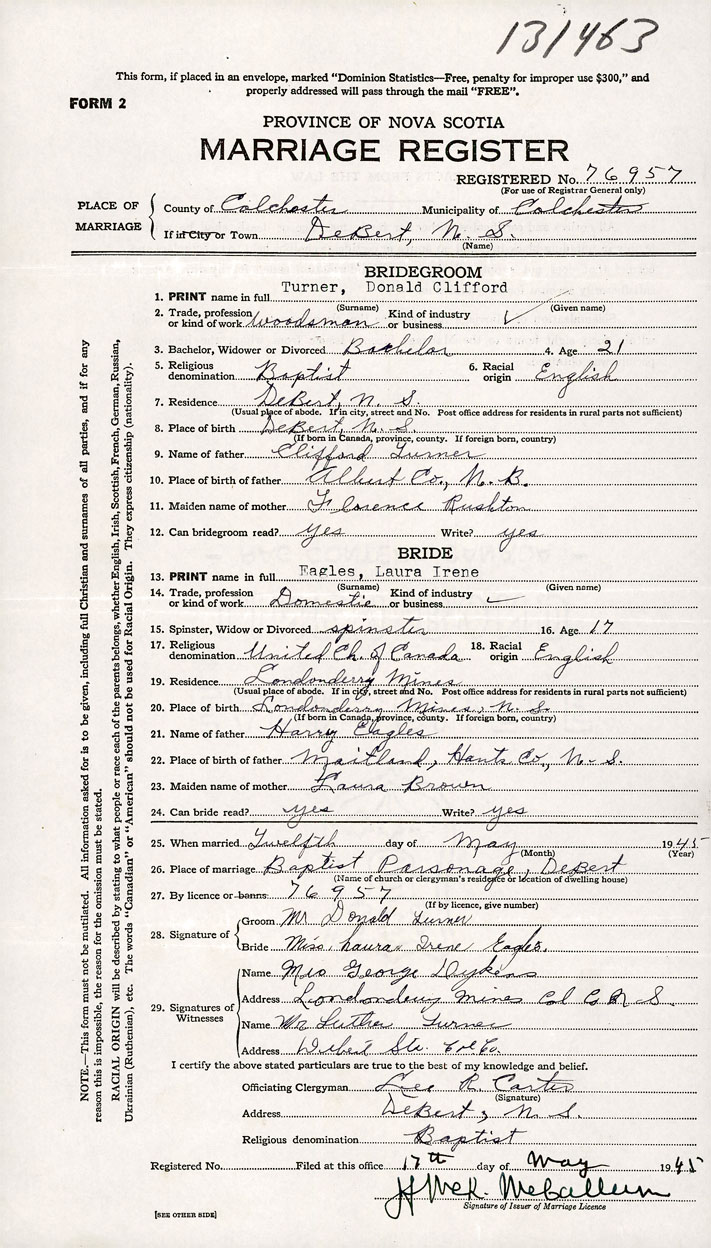 131463
This form, if placed in an envelope, marked "Dominion Statistics—Free, penalty for improper use $300," and
properly addressed will pass through the mail "FREE".
FORM 2
PROVINCE OF NOVA SCOTIA
MARRIAGE REGISTER
REGISTERED No. 76957
(For use of Registrar General only)
PLACE OF MARRIAGE
County of Colchester Municipality of Colchester
If in City or Town DeBert, N. S.
(Name)
BRIDEGROOM
1. PRINT name in full Turner, Donald Clifford
(Surname) (Given name)
2. Trade, profession or kind of work woodsman Kind of industry or business
3. Bachelor, Widower or Divorced Bachelor 4. Age 21
5. Religious denomination Baptist 6. Racial origin English
7. Residence DeBert, N. S.
(Usual place of abode. If in city, street and No. Post office address for residents in rural parts not sufficient)
8. Place of birth DeBert, N. S.
(If born in Canada, province, county. If foreign born, country)
9. Name of father Clifford Turner
10. Place of birth of father Albert Co., N. B.
11. Maiden name of mother Florence Rushton
12. Can bridegroom read? yes Write? yes
BRIDE
13. PRINT name in full Eagles, Laura Irene
(Surname) (Given name)
14. Trade, profession or kind of work Domestic Kind of industry or business
15. Spinster, Widow or Divorced spinster 16. Age 17
17. Religious denomination United Ch. of Canada 18. Racial origin English
19. Residence Londonderry Mines
(Usual place of abode. If in city, street and No. Post office address for residents in rural parts not sufficient)
20. Place of birth Londonderry Mines, N. S.
(If born in Canada, province, county. If foreign born, country)
21. Name of father Harry Eagles
22. Place of birth of father Maitland, Hants Co., N. S.
23. Maiden name of mother Laura Brown
24. Can bride read? yes Write? yes
25. When married Twelfth day of May 1945
(Month) (Year)
26. Place of marriage Baptist Parsonage, DeBert
(Name of church or clergyman's residence or location of dwelling house)
27. By licence or banns 76957
(If by licence, give number)
28. Signature of
Groom Mr Donald Turner
Bride Miss. Laura Irene Eagles.
29. Signatures of Witnesses
Name Mrs George Dykens
Address Londonderry Mines Col Co N. S.
Name Mr Luther Turner
Address Debert Sta. Col Co.
I certify the above stated particulars are true to the best of my knowledge and belief.
Officiating Clergyman Lee R. Carter
(Signature)
Address DeBert, N. S.
Religious denomination Baptist
Registered No. Filed at this office 17th day of May 1945
H McK. McCallum
Signature of Issuer of Marriage Licence
[SEE OTHER SIDE]
NOTE.—This form must not be mutilated. All information asked for is to be given, including full Christian and surnames of all parties, and if for any
reason this is impossible, the reason for the omission must be stated.
RACIAL ORIGIN will be described by stating to what people or race each of the parents belongs, whether English, Irish, Scottish, French, German, Russian,
Ukrainian (Ruthenian), etc. The words "Canadian" or "American" should not be used for Racial Origin. They express citizenship (nationality).